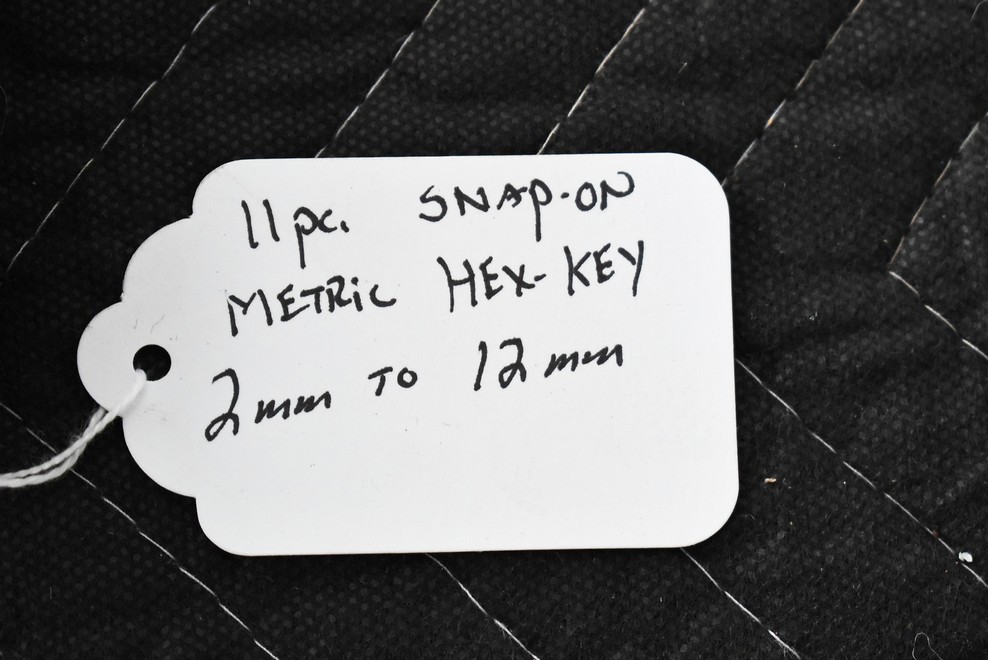 11pc. SNAP-ON
METRiC HEX-KEY
2mm TO 12mm